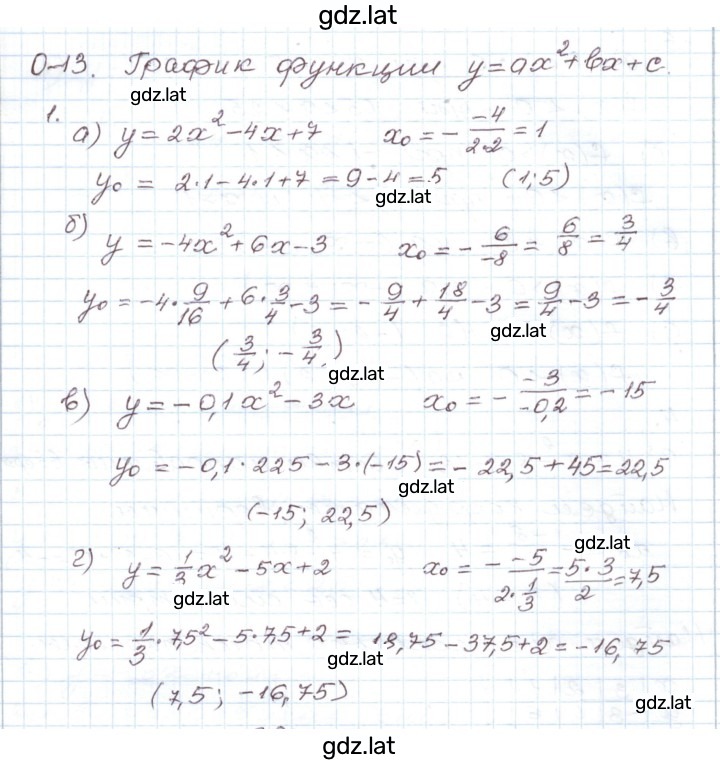 gdz.lat
О-13. График функции y=ax²+bx+c.
gdz.lat
1.
а) y=2x²-4x+7 x₀=-\frac{-4}{2·2}=1
y₀ = 2·1-4·1+7=9-4=5 (1;5)
gdz.lat
б) y=-4x²+6x-3 x₀=-\frac{6}{-8}=\frac{6}{8}=\frac{3}{4}
y₀=-4·\frac{9}{16}+6·\frac{3}{4}-3=-\frac{9}{4}+\frac{18}{4}-3=\frac{9}{4}-3=-\frac{3}{4}
gdz.lat
(\frac{3}{4}; -\frac{3}{4})
gdz.lat
в) y=-0,1x²-3x x₀=-\frac{-3}{-0,2}=-15
y₀=-0,1·225-3·(-15)=-22,5+45=22,5
gdz.lat
(-15; 22,5)
gdz.lat
г) y=\frac{1}{3}x²-5x+2 x₀=-\frac{-5}{2·\frac{1}{3}}=\frac{5·3}{2}=7,5
gdz.lat
y₀=\frac{1}{3}·7,5²-5·7,5+2= 18,75-37,5+2=-16,75
gdz.lat
(7,5; -16,75)
gdz.lat
gdz.lat